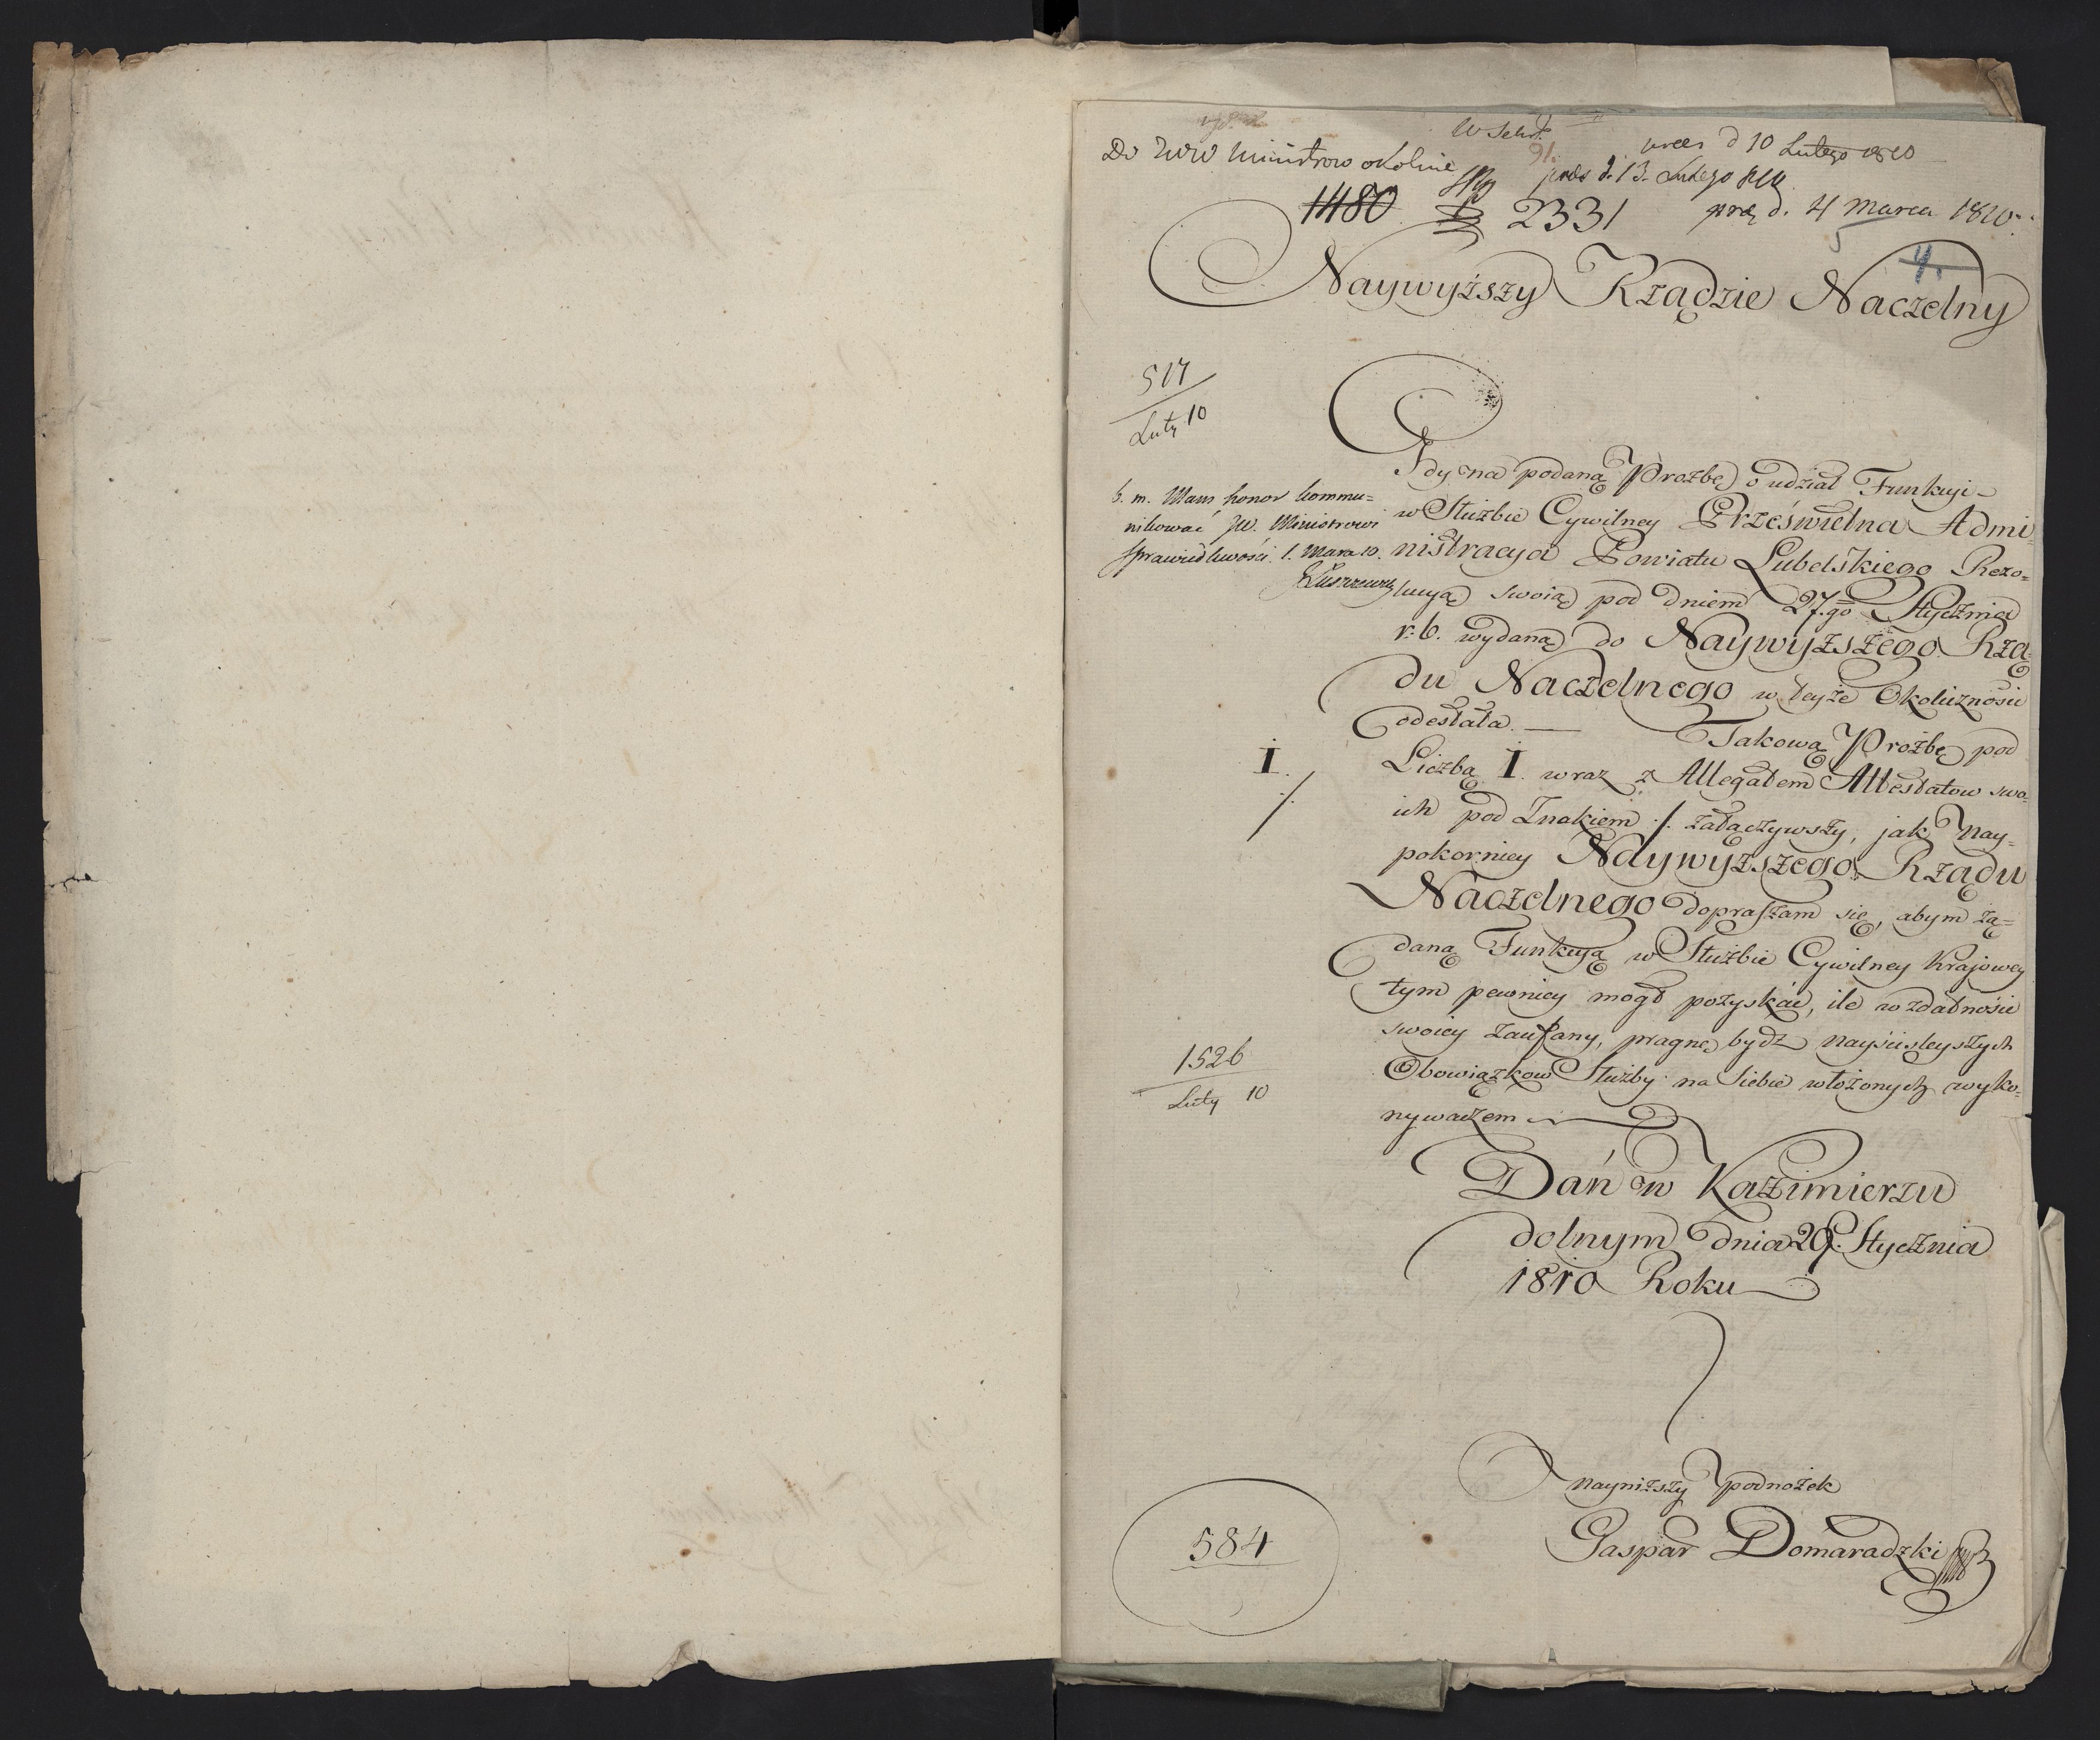 W Sekr.
91.
prees d 10 Lutego 1810
Do JWW Ministrow okolnie
prees d. 13. Lutego
1480 2331
prez d. 4 Marca 1810.
5
4.
Naywyższy Rządzie Naczelny
517
Luty 10
Gdy na podaną Proźbę o udział Funkcyi
w Służbie Cywilney Prześwietna Admi-
nistracya Powiatu Lubelskiego Rezo=
lucyą swoią pod dniem 27.go Stycznia
r. b. wydaną do Naywyższego Rzą-
du Naczelnego w teyże Okoliczności
odesłała. — Takową Proźbę pod
Liczbą I. wraz z Allegatem Attestatow swo-
ich pod Znakiem ·/. załączywszy, jak Nay-
pokorniey Naywyższego Rządu
Naczelnego dopraszam się, abym żą=
daną Funkcyą w Służbie Cywilney Krajowey
tym pewniey mogł pozyskać, ile w zdatności
swoiey zaufany, pragnę bydź nayściśleyszych
Obowiązkow Służby na Siebie włożonych wyko=
nywaczem
b. m. Mam honor kommu=
nikować JW. Ministrowi
Sprawiedliwości. 1. Marca 10.
Łuszczewski
I.
·/.
1526
Luty 10
Dań w Kaźimierzu
dolnym dnia 29. Stycznia
1810 Roku
nayniższy podnożek
Gaspar Domaradzki
584